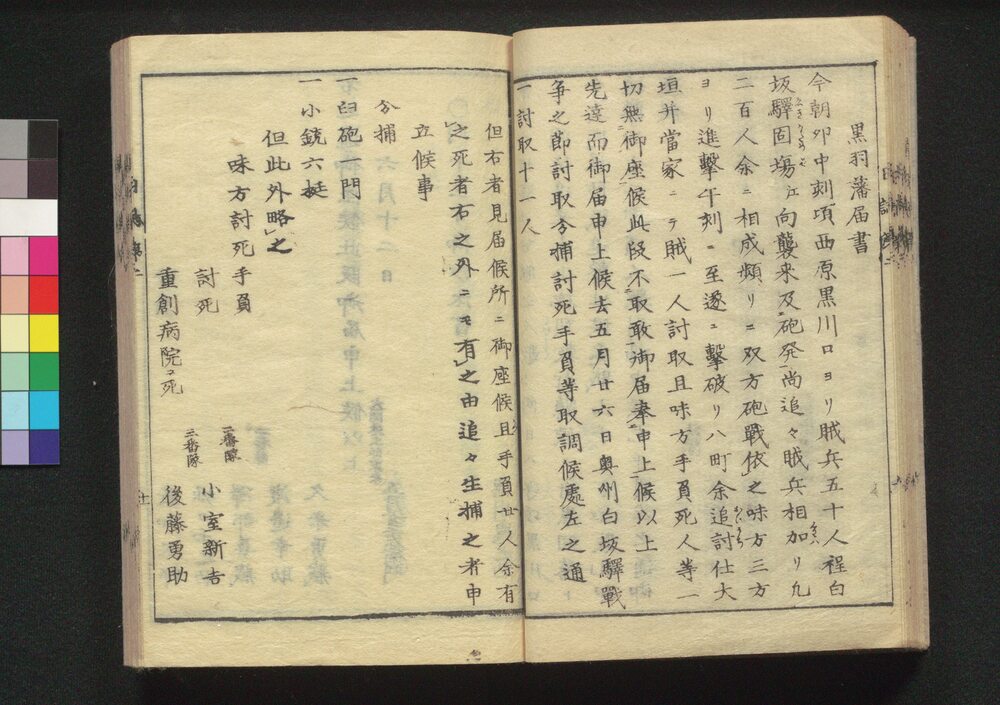 黒羽藩届書
今朝卯中刻頃西原黒川口ヨリ賊兵五十人程白
坂驛固場江向襲来及砲発尚追々賊兵相加リ凡
二百人余ニ相成頻リニ双方砲戰依之味方三方
ヨリ進撃午刻ニ至遂ニ擊破リ八町余追討仕大
垣并當家ニテ賊一人討取且味方手負死人等一
切無御座候此段不取敢御届奉申上候以上
先達而御届申上候去五月廿六日奥州白坂驛戰
争之節討取分捕討死手負等取調候處左之通
一討取十一人
但右者見届候所ニ御座候且手負廿人余有
之死者右之外ニモ有之由追々生捕之者申
立候事
分捕
一臼砲一門
一小銃六挺
但此外略之
味方討死手負
討死
二番隊 小室新吉
重創病院ニ死
三番隊 後藤勇助